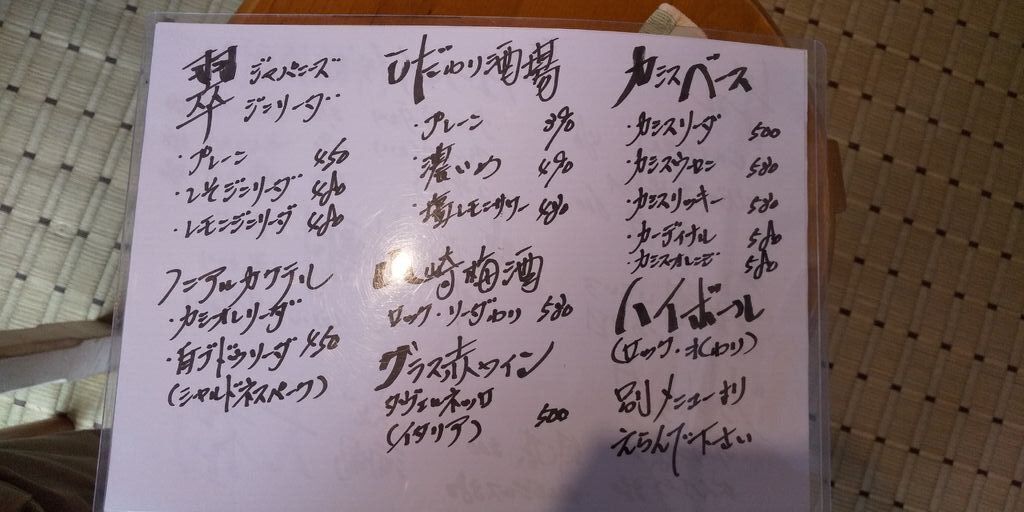 翠 ジャパニーズ
ジンソーダ
・プレーン 450
・しそジンソーダ 480
・レモンジンソーダ 480
ノンアルカクテル
・カシオレソーダ
・白ブドウソーダ 450
(シャルドネスパーク)
こだわり酒場
・プレーン 390
・濃いめ 490
・塩レモンサワー 480
山崎梅酒
ロック・ソーダわり 580
グラス赤ワイン
タヴェルネッロ
(イタリア) 500
カシスベース
・カシスソーダ 500
・カシスウーロン 580
・カシスリッキー 580
・カーディナル 580
・カシスオレンジ 580
ハイボール
(ロック・水わり)
別メニューより
えらんで下さい